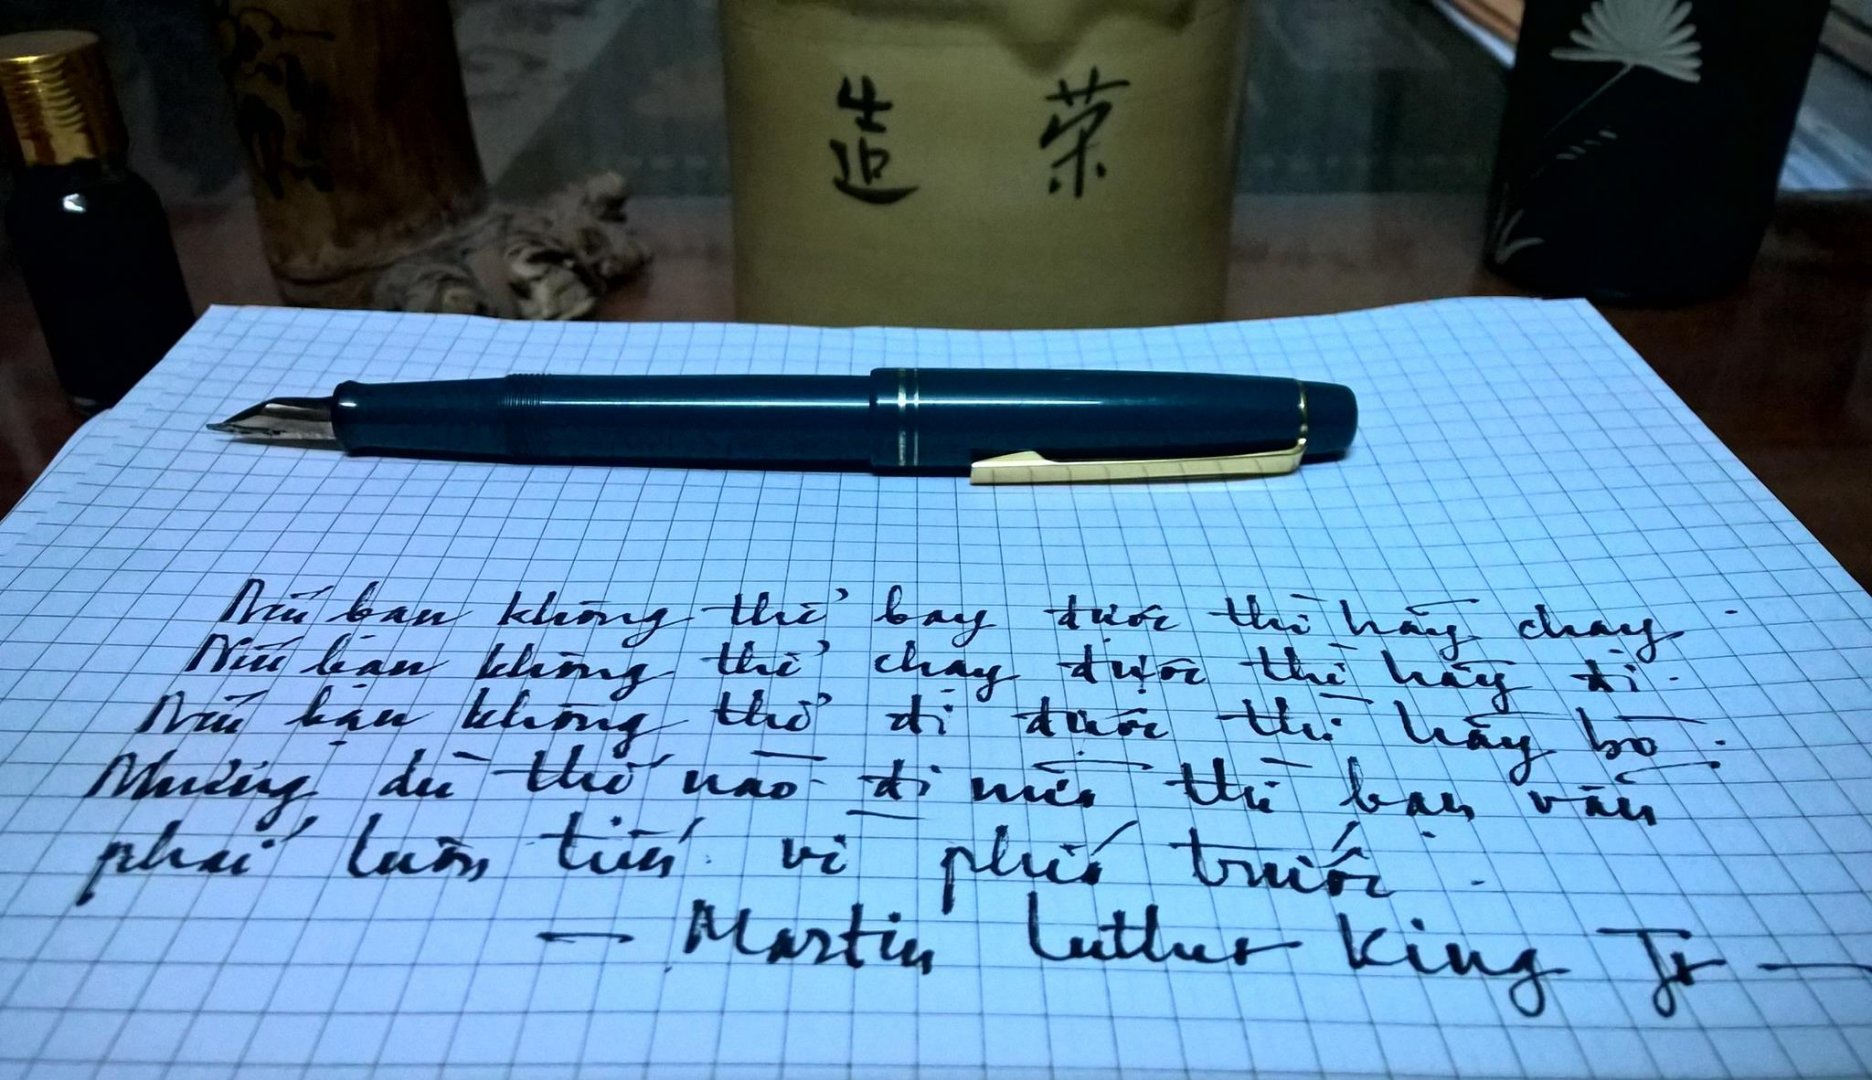 造 荣
Nếu bạn không thể bay được thì hãy chạy.
Nếu bạn không thể chạy được thì hãy đi.
Nếu bạn không thể đi được thì hãy bò.
Nhưng dù thế nào đi nữa thì bạn vẫn
phải luôn tiến về phía trước.
— Martin Luther King Jr —